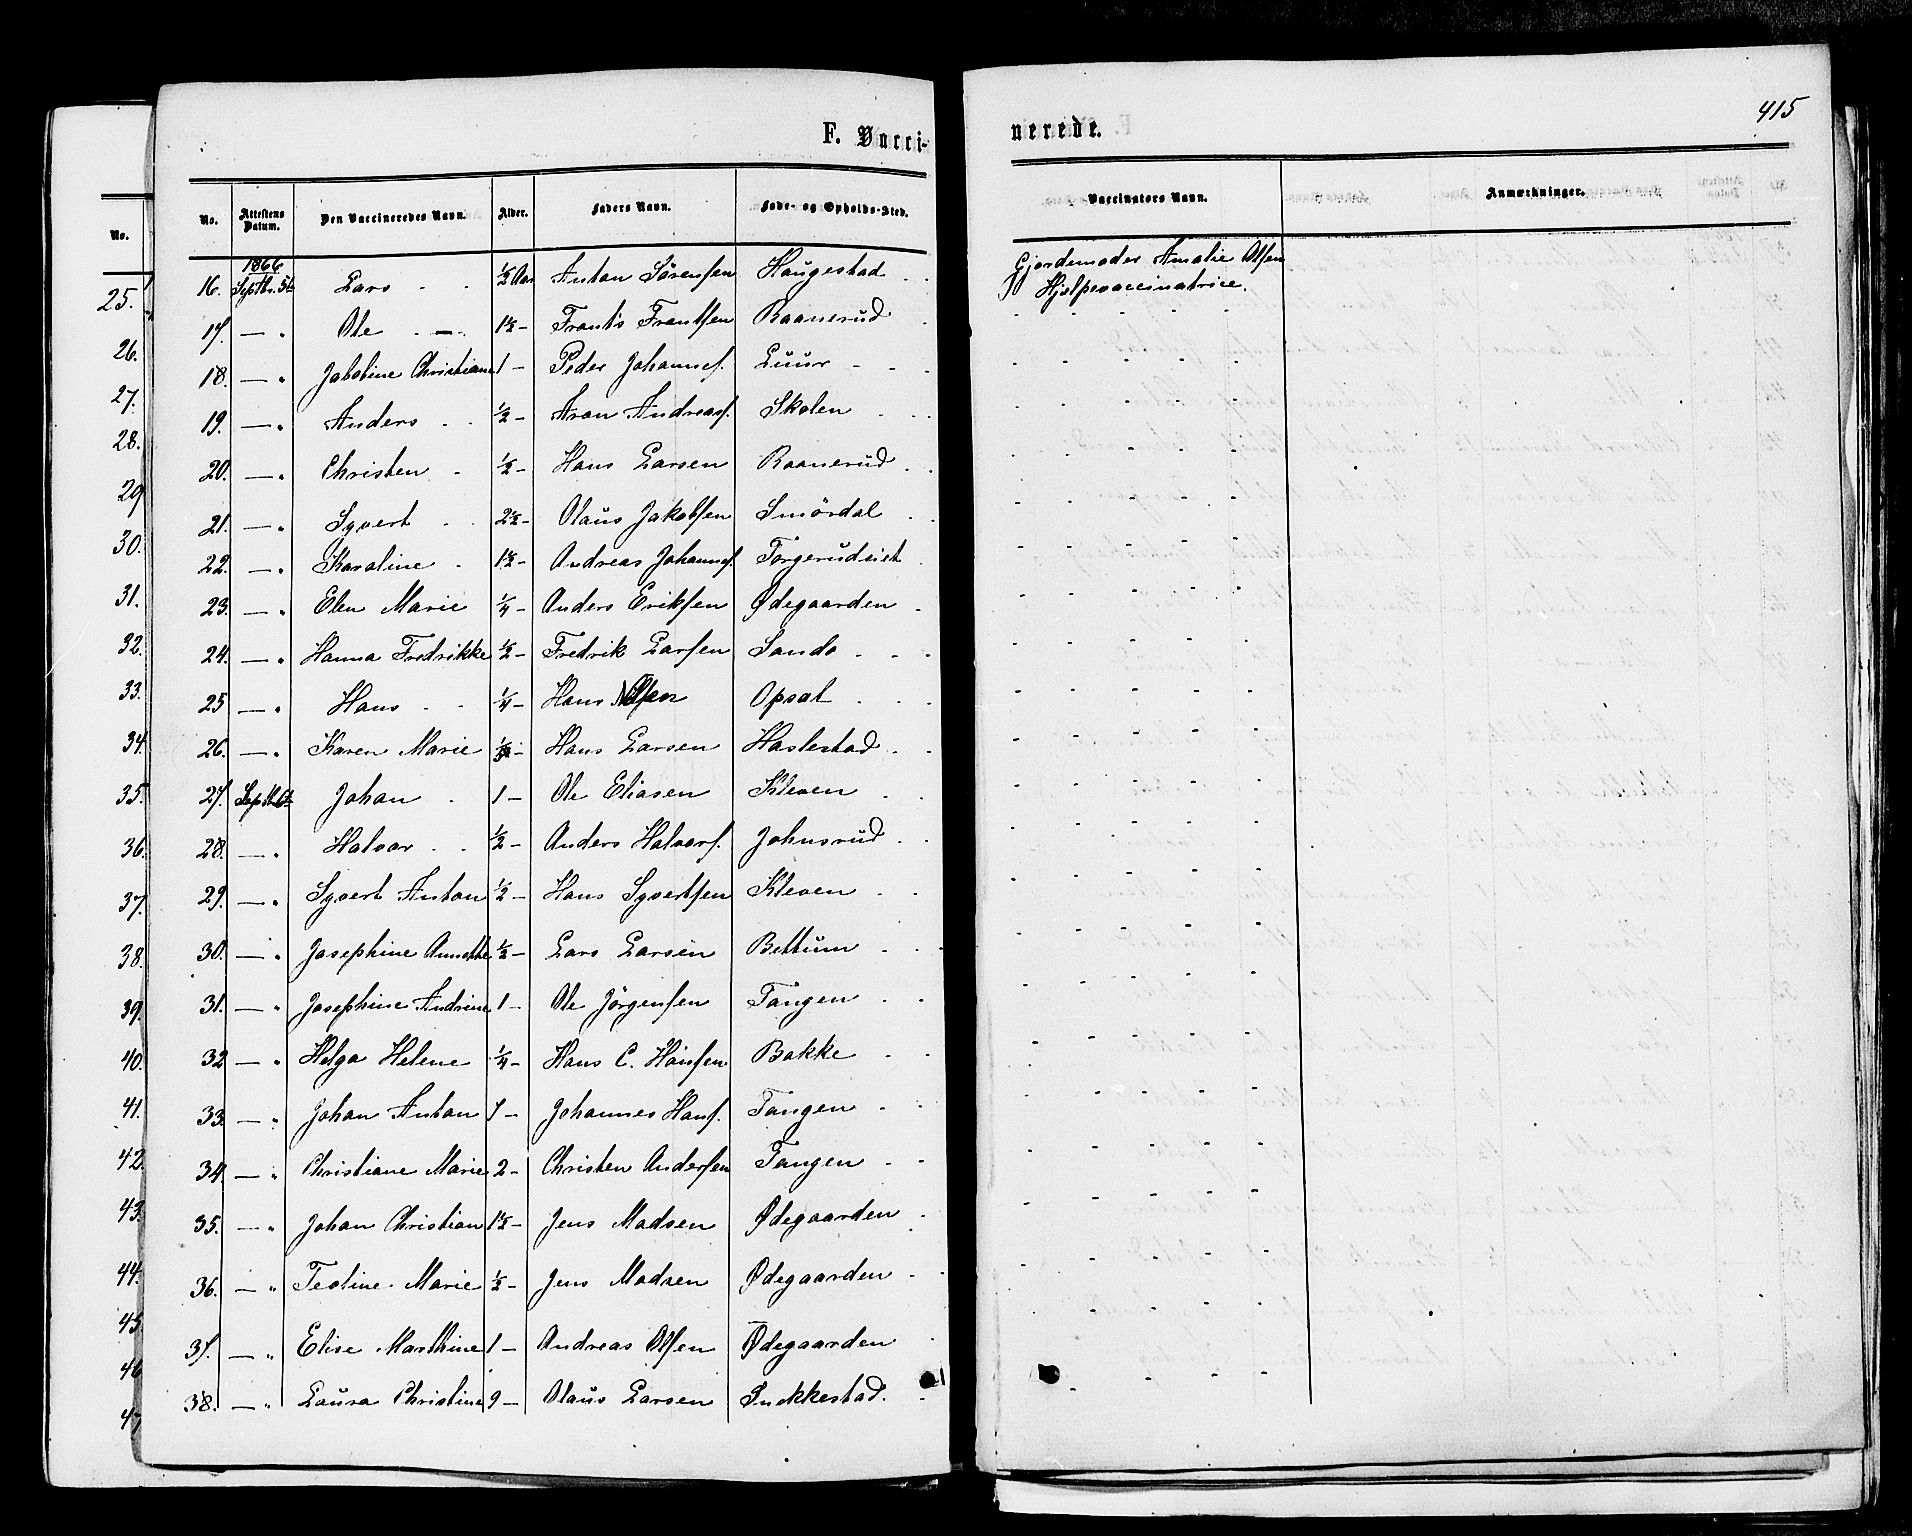 415
F. Vacci-
nerede.
No. Attestens Datum. Den Vaccineredes Navn. Alder. Faders Navn. Føde- og Opholds-Sted. Vaccinators Navn. Anmærkninger.
1866
16. Septbr. 5te Lars ½ Aar Anton Sörensen Haugestad Gjordemoder Amalie Olsen
Hjelpevaccinatrice.
17. — " Ole 1½ — Frants Frantsen Raanerud
18. — " Jakobine Christiane 1 — Peder Johannes. Luur
19. — " Anders ½ — Aron Andreas. Skolen
20. — " Christen ½ — Hans Larsen Raanerud
21. — " Syvert 2½ — Olaus Jakobsen Smördal
22. — " Karoline 1½ — Andreas Johannes. Torgerudeiet
23. — " Elen Marie ¼ — Anders Eriksen Ødegaarden
24. — " Hanna Fredrikke ½ — Fredrik Larsen Sando
25 — " Hans ¼ — Hans Olsen Opsal
26. — " Karen Marie — Hans Larsen Haslestad
27. Septb. 6te Johan 1 — Ole Eliasen Kleven
28. — " Halvor ½ — Anders Halvors. Johnsrud
29. — " Syvert Anton ½ — Hans Syvertsen Kleven
30. — " Josephine Annette ½ — Lars Larsen Bettum
31. — " Josephine Andrine 1 — Ole Jörgensen Tangen
32 — " Helga Helene ¼ — Hans C. Hansen Bakke
33. — " Johan Anton 1 — Johannes Hans. Tangen
34. — " Christiane Marie 2 — Christen Andersen Tangen
35. — " Johan Christian 1½ — Jens Madsen Ødegaarden
36. — " Teoline Marie ½ — Jens Madsen Ødegaarden
37. — " Elise Marthine 1 — Andreas Olsen Ødegaarden
38. — " Laura Christine 9 — Olaus Larsen Snekkestad.
No.
25.
26.
27.
28.
29
30.
31.
32.
33.
34.
35.
36.
37.
38.
39.
40.
41.
42.
43.
44.
45
46
47